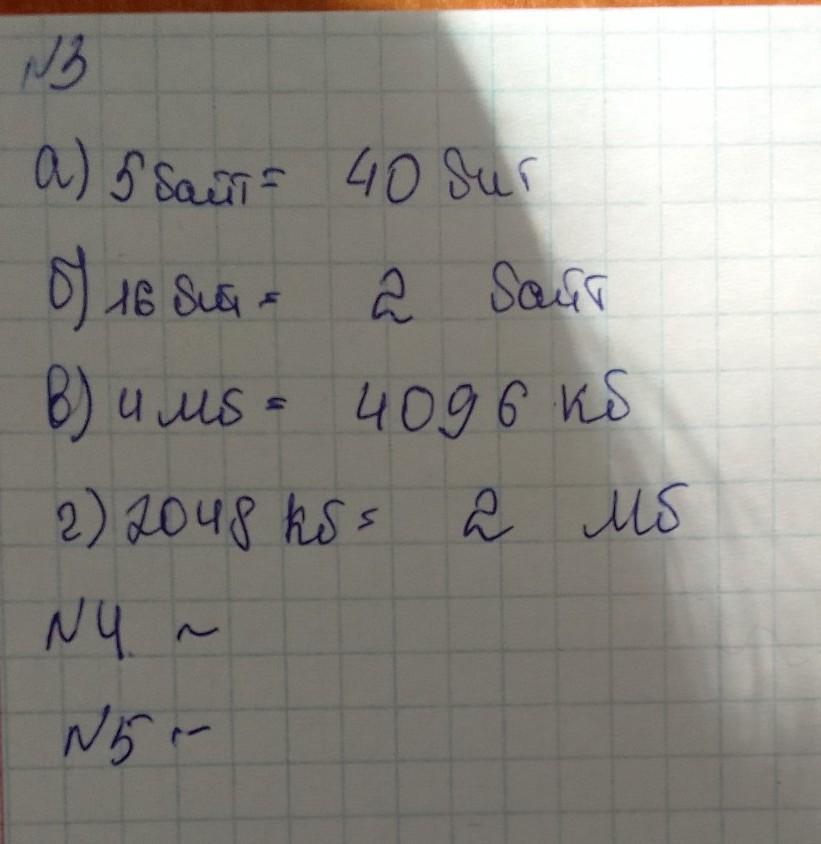 №3
а) 5 байт = 40 бит
б) 16 бит = 2 байт
в) 4 Мб = 4096 Кб
г) 2048 Кб = 2 Мб
№4 ~
№5 ~